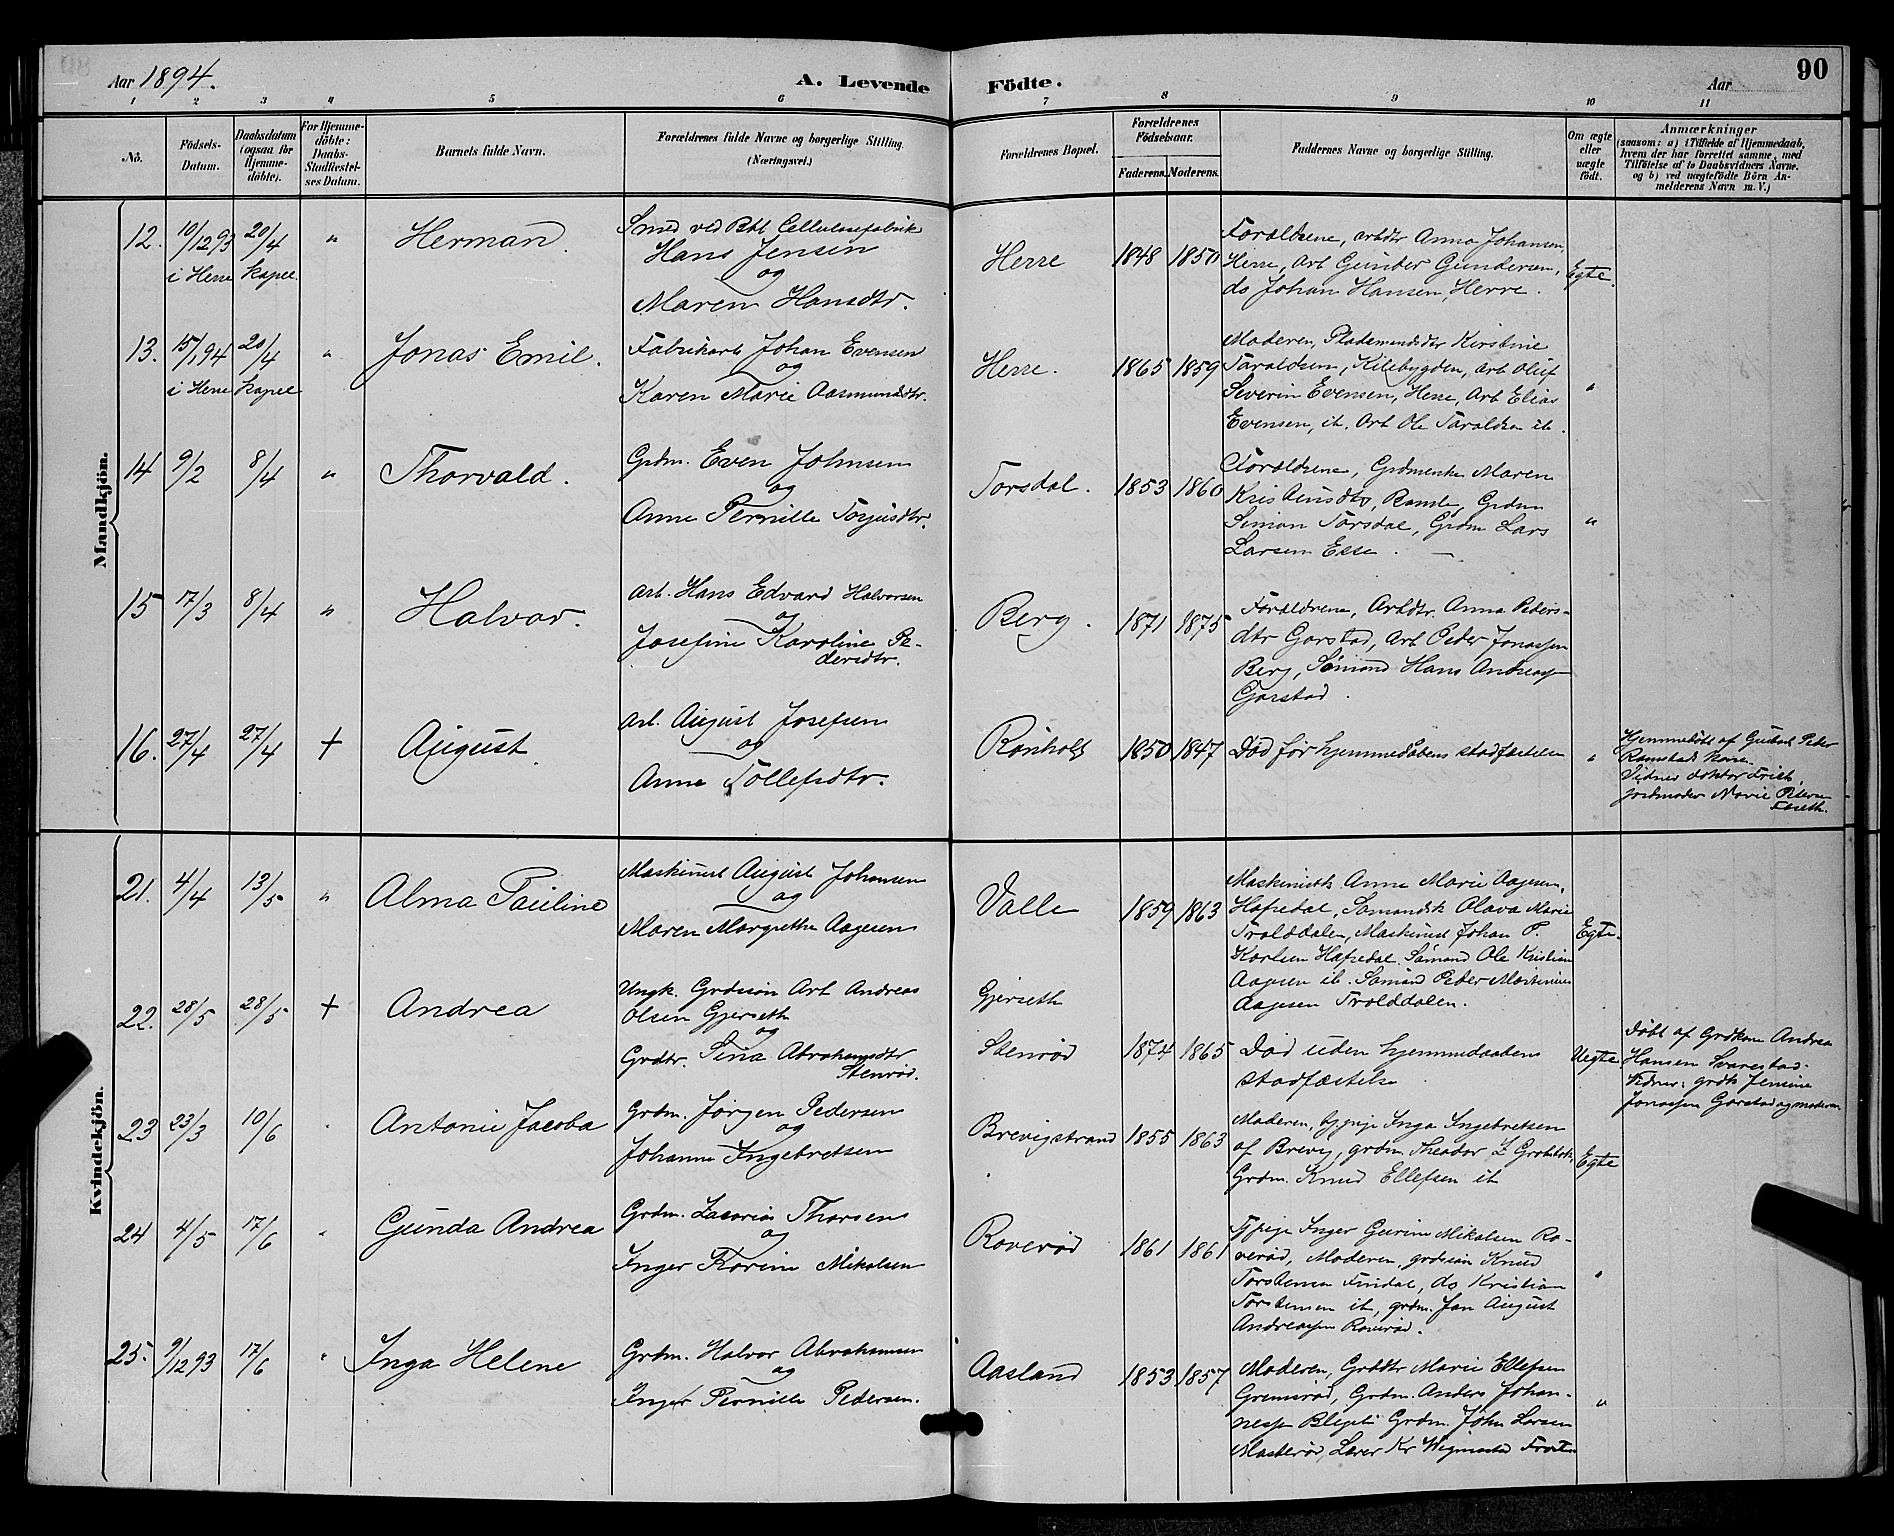 90
Aar 1894.
A. Levende Födte.
Aar
1 2 3 4 5 6 7 8 9 10 11
No.
Födsels-Datum.
Daabsdatum (ogsaa for Hjemme-döbte).
For Hjemme-döbte: Daabs-Stadfæstel-ses Datum.
Barnets fulde Navn.
Forældrenes fulde Navne og borgerlige Stilling. (Næringsvei.)
Forældrenes Bopæl.
Forældrenes Födselsaar.
Faderens. Moderens.
Faddernes Navne og borgerlige Stilling.
Om ægte eller uægte födt.
Anmærkninger
(saasom: a) i Tilfælde af Hjemmedaab,
hvem der har forrettet samme, med
Tilföielse af to Daabsvidners Navne.
og b) ved uægtefödte Börn An-
melderens Navn m. V.)
Mandkjön.
12. 10/12 93 20/4 " Herman.
i Herre kapel
Smed ved Bbl Cellulosefabrik
Hans Jensen
og
Maren Hansdtr.
Herre 1848 1850
Forældrene, arbdtr Anna Johansen,
Herre, Arb Gunder Gundersen,
do Johan Hansen, Herre.
Egte.
13. 15/1 94 20/4 " Jonas Emil.
i Herre kapel
Fabrikarb Johan Evensen
og
Karen Marie Aasmundsdtr.
Herre. 1865 1859
Moderen, Pladsmandsdtr Kirstine
Taraldsen, Kilebygden, Arb Oluf
Severin Evensen, Herre, Arb Elias
Evensen, ib, Arb Ole Taraldsen ib.
"
14 9/2 8/4 " Thorvald.
Grdm. Even Johnsen
og
Anne Pernille Torjusdtr.
Torsdal. 1853 1860
Forældrene, Grdmenke Maren
Kristensdtr, Bamle, Grdm
Simon Torsdal, Grdm Lars
Larsen
"
15 17/3 8/4 " Halvor.
Arb. Hans Edvard Halvorsen
og
Josefine Karoline Pe-
dersdtr.
Berg. 1871 1875
Forældrene, Arbdtr. Anna Peders-
dtr Gorstad, Arb Peder Jonassen
Berg, Sömand Hans Andreassen
Gorstad.
16. 27/4 27/4 + August.
Arb. August Josefsen
og
Anne Tollefsdtr.
Rönholt 1850 1847
Död för hjemmedåbens stadfæstelse
"
Hjemmedöbt af Gustav Peder
Ramstads kone.
Vidner doktor
jordmoder Marie Petersen
Kvindekjön.
21. 4/4 13/5 " Alma Pauline
Maskinist August Johansen
og
Maren Margrethe Aagesen
Valle 1859 1863
Maskinistk. Anne Marie Aagesen,
Hafsedal, Sömandsk Olava Marie
Trolddalen, Maskinist Johan P.
Karlsen Hafsedal, Sömand Ole Kristian
Aagesen ib. Sömand Peder Martinius
Aagesen Trolddalen.
Egte.
22. 28/5 28/5 + Andrea
Ungk. Grdssön Arb Andreas
Olsen Gjerseth
og
Grdtr. Sina Abrahamsdtr
Stenröd.
Gjerseth
Stenröd 1874 1865
Död uden hjemmedaabens
stadfæstelse.
Uegte
Döbt af Grdkone Andrea
Hansen Svarestad.
Vidner: grdk Jensine
Jonassen Gorstad og moderen
23 23/3 10/6 " Antonie Jacoba
Grdm. Jörgen Pedersen
og
Johanne Ingebretsen
Brevigstrand 1855 1863
Moderen, tj pige Inga Ingebretsen
af Brevig, grdm. Theodor L
Grdm. Knud Ellefsen ib
Egte
24 4/5 17/6 " Gunda Andrea
Grdm. Zacarias Thorsen
og
Inger Karine Mikalsen
Roveröd 1861 1861
Tj pige Inger Gurine Mikalsen Ro-
veröd, Moderen, grdssön Knud
Torstensen Findal, do Kristian
Torstensen ib, grdm. Jan August
Andreassen Roveröd.
"
25. 9/12 93 17/6 " Inga Helene
Grdm. Halvor Abrahamsen
og
Inger Pernille Pedersen.
Aasland 1853 1857
Moderen, Grddtr Marie Ellefsen
Gremsröd, Grdm. Anders Johan-
nessen Grdm. John Larsen
Lærer Kr Wigmostad
"